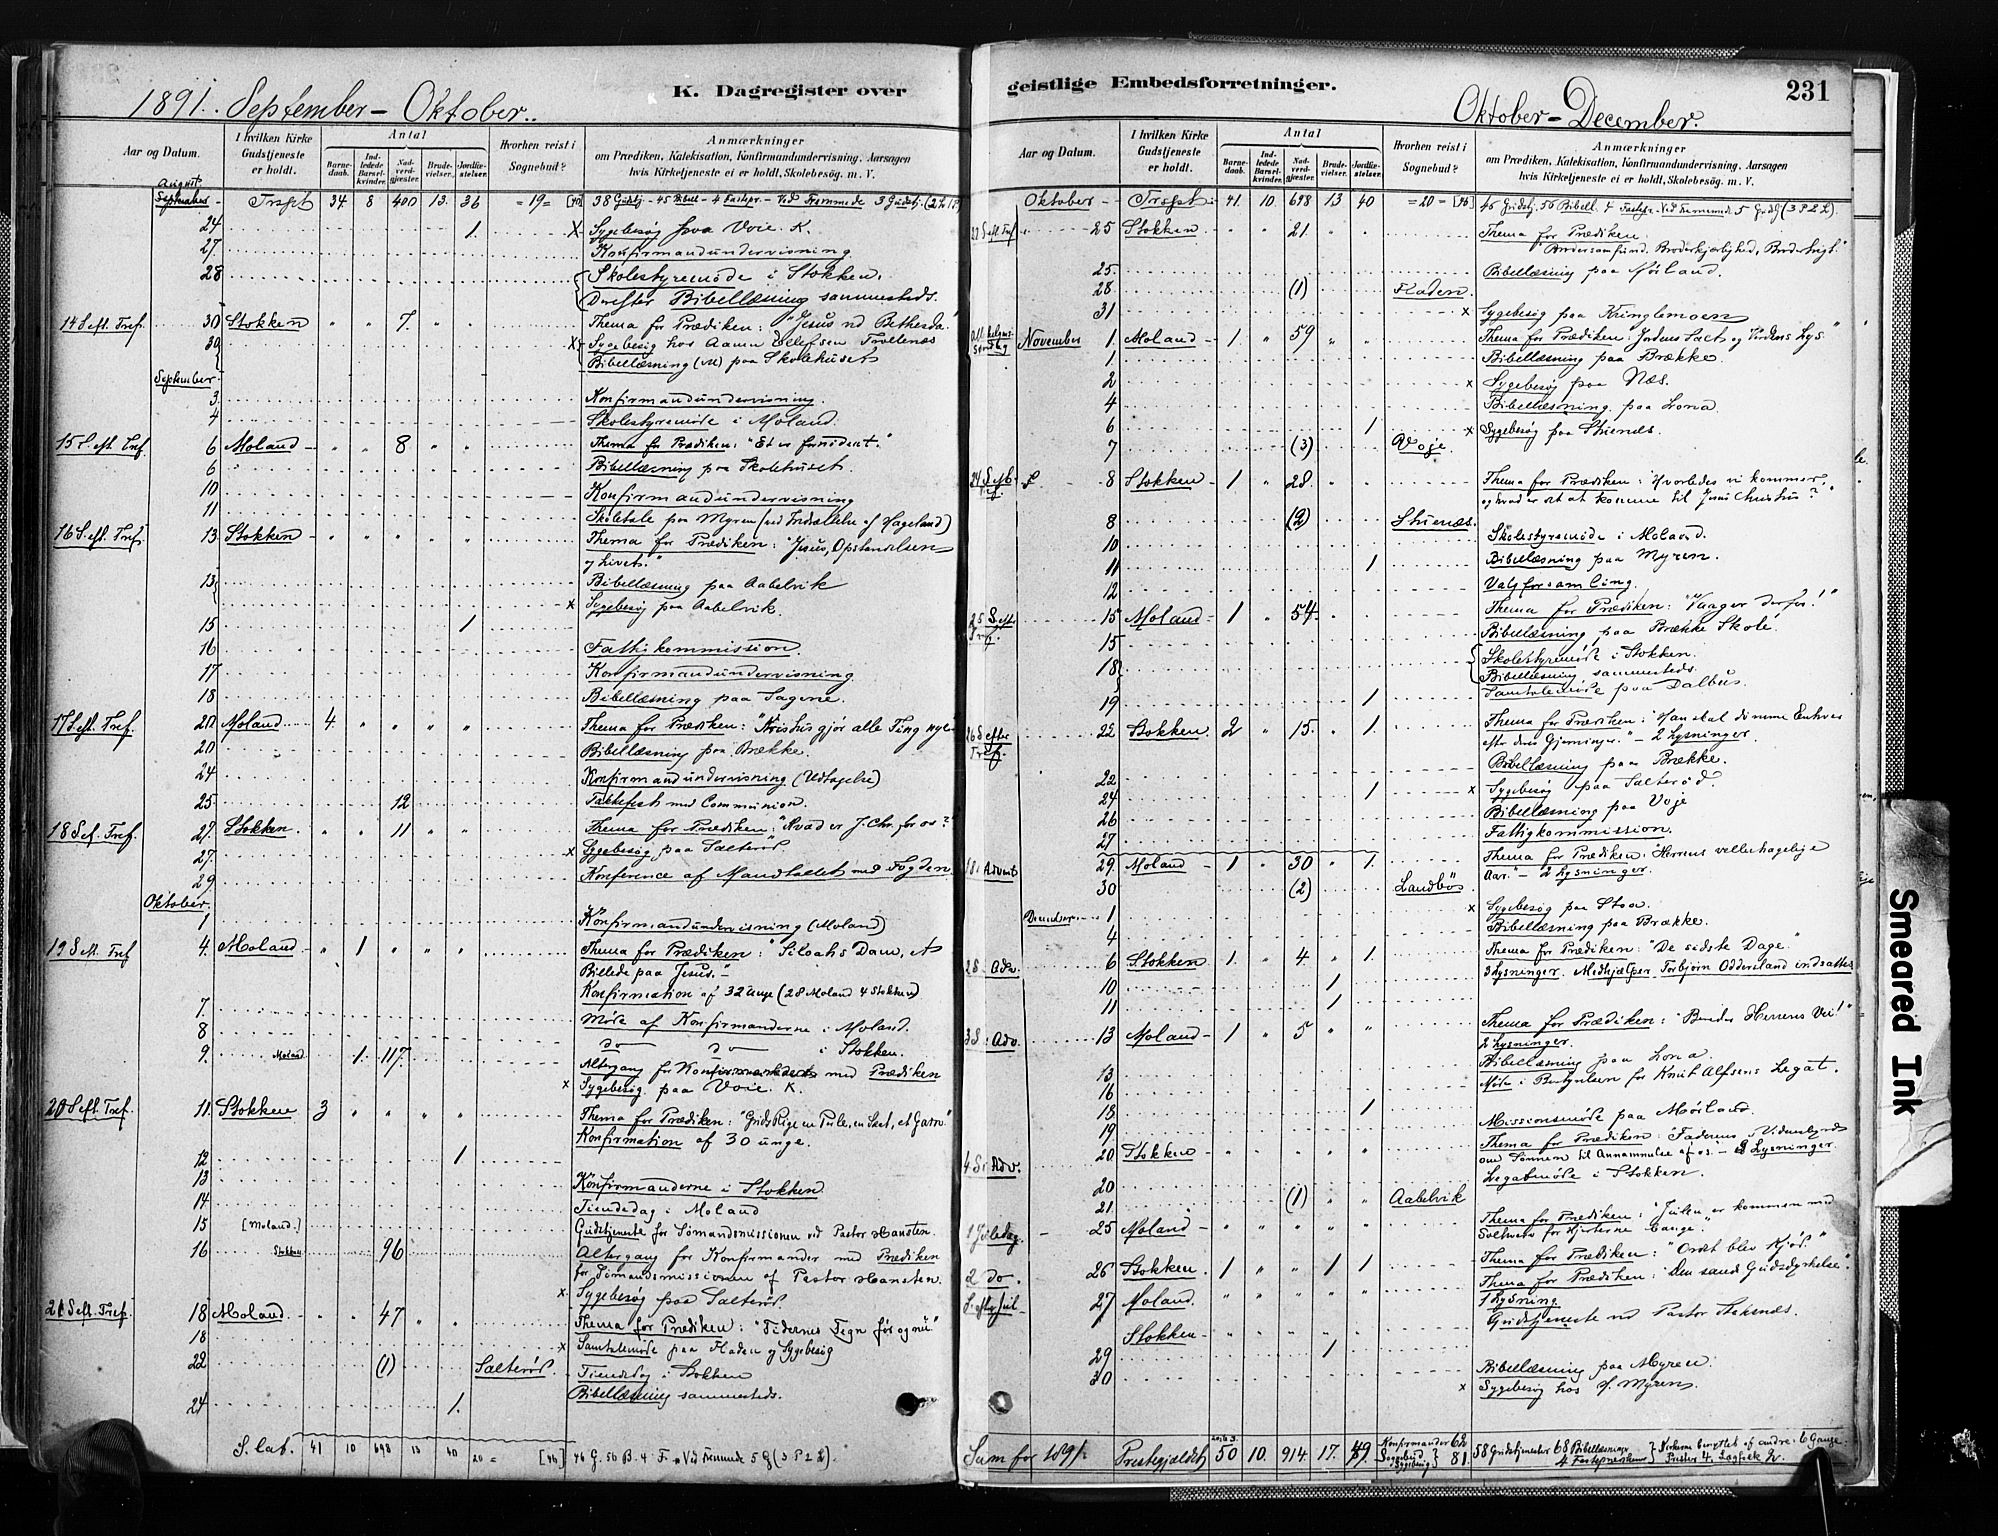 1891. September – Oktober.
K. Dagregister over
Aar og Datum.
I hvilken Kirke Gudstjeneste er holdt.
Antal
Barnedaab.
Indledede Barselkvinder.
Nadverdgjæster.
Brudevielser.
Jordfæstelser.
Hvorhen reist i Sognebud?
Anmærkninger
om Prædiken, Katekisation, Konfirmandundervisning, Aarsagen
hvis Kirketjeneste ei er holdt, Skolebesøg. m. V.
August
Trsgt 34 8 400 13. 36 =19=
24 1. X Sygebesøg paa Voie. K.
27. Konfirmandundervisning
28 Skolestyremøde i Stokken.
Derefter Bibellæsning sammesteds.
14 S. eft. Tref. 30 Stokken " " 7. " " Thema for Prædiken: "Jesus ved Bethesda."
30 X Sygebesøg hos Aanon Ellefsen Trollenæs
Bibellæsning (M) paa Skolehuset
September
3. Konfirmandundervisning.
4 Skolestyremøde i Moland.
15 S. eft. Tref. 6 Moland " " 8 " " Thema for Prædiken: "Et er fornødent."
6 Bibellæsning paa Skolehuset.
10 Konfirmandundervisning
11 Skoletale paa Myren (ved Indsættelse af Hageland)
16 S. eft. Tref. 13. Stokken " " " " " Thema for Prædiken: "Jesus, Opstandelsen
og Livet."
13 Bibellæsning paa Aabelvik
x Sygebesøg paa Aabelvik.
15 1
16 Fattigkommission.
17 Konfirmandundervisning.
18 Bibellæsning paa Sagene.
17 S. eft. Tref. 20 Moland 4 " " " " Thema for Prædiken: "Kristus gjør alle Ting nye"
20 Bibellæsning paa Brække.
24 Konfirmandundervisning (Udtagelse)
25 12 Takkefest med Communion.
18 S. ef. Tref. 27. Stokken. " " 11 " " Thema for Prædiken: "Hvad er J. Chr. for os?"
27. x Sygebesøg paa Salterød.
29 Konference af Mandtallet med Fogden
Oktober.
1 Konfirmandundervisning (Moland)
19 S. eft. Tref 4 Moland " 1 " " " Thema for Prædiken: "Siloahs Dam, et
Billede paa Jesus."
Konfirmation af 32 Unge (28 Moland 4 Stokken)
7. Møde af Konfirmanderne i Moland.
8 do do i Stokken.
9. Moland. 1. 117. Altergang for Konfirmanderne med Prædiken
x Sygebesøg paa Voie. K.
20 S. eft. Tref. 11. Stokken 3 " " " " Thema for Prædiken: "Guds Rige en Perle, en Skat, et Garn."
Konfirmation af 30 unge.
12 1
13 Konfirmanderne i Stokken
14 Tiendedag i Moland
15 [Moland.] Gudstjeneste for Sømandsmissionen ved Pastor Hansten.
16 Stokken 96 Altergang for Konfirmander med Prædiken
for Sømandsmissionen af Pastor Hansten.
x Sygebesøg paa Salterød.
21 S. eft. Tref. 18 Moland " " 47 " " Thema for Prædiken: "Tidernes Tegn før og nu."
18 x Samtalemøde paa Fladen og Sygebesøg
22 (1) Salterød. Tiendedag i Stokken
Bibellæsning sammesteds.
24 1.
S. lat. 41 10 698 13 40 20 = [46] 46 G. 56 B. 4 F. Ved Fremmede 5 G (3 P 2 L).
geistlige Embedsforretninger.
231
Oktober – December.
Aar og Datum.
I hvilken Kirke Gudstjeneste er holdt.
Antal
Barnedaab.
Indledede Barselkvinder.
Nadverdgjæster.
Brudevielser.
Jordfæstelser.
Hvorhen reist i Sognebud?
Anmærkninger
om Prædiken, Katekisation, Konfirmandundervisning, Aarsagen
hvis Kirketjeneste ei er holdt, Skolebesøg. m. V.
Oktober Trsgt 41. 10. 698 13 40 =20= [46] 46 Gudstj. 56 Bibell. 4 Fastepr. Ved Fremmede 5 Gudstj (3 P 2 L).
22 S eft Tref 25 Stokken " " 21 " " Thema for Prædiken:
"Brodersamfund, Broderkjærlighed,
25. Bibellæsning paa Mørland.
28 (1) Fladen.
31 x Sygebesøg paa Kringlemoen
Allehelgens søndag November 1. Moland 1 " 59 " " Thema for Prædiken: Jordens Salt og Verdens Lys."
1 Bibellæsning paa Brække.
2 x Sygebesøg paa Næs.
4 Bibellæsning paa Lona.
6 1 x Sygebesøg paa Stuenæs.
7 (3) Voje.
24 S. eft. Tref. 8 Stokken 1 " 28. " " Thema for Prædiken: "Hvorledes vi kommer,
og hvad er det at komme til Jesus Christus?"
8 (2) Stuenæs.
10 Skolestyremøde i Moland.
11 1 Bibellæsning paa Myren.
12 Valgforsamling.
25 S. eft. Tref. 15 Moland 1 " 54. " " Thema for Prædiken: "Vaager derfor!"
15 Bibellæsning paa Brække Skole.
18 Skolestyremøde i Stokken.
Bibellæsning sammesteds.
19 1 Samtalemøde paa Dalbus.
26 S efter Tref. 22 Stokken 2 " 15. " 1. Thema for Prædiken: "Han skal dømme Enhver
efter deres Gjerninger." – 2 Lysninger.
22 Bibellæsning paa Brække.
24 1 x Sygebesøg paa Salterød.
26 Bibellæsning paa Voje
27 Fattigkommission.
1 S. i Advent 29. Moland 1 " 30 " 1. Thema for Prædiken: "Herrens velbehagelige
Aar." – 2 Lysninger.
30 (2) Landbøs
December 1 x Sygebesøg paa Stoa.
4 Bibellæsning paa Brække.
2 S. i Adv. 6 Stokken 1 " 4 " 1. Thema for Prædiken: "De sidste Dage."
3 Lysninger. Medhjælper Torbjørn Oddersland indsattes
10 1
11 1
3 S. i Adv. 13 Moland 1 " 5 " " Thema for Prædiken: "Bereder Herrens Vei!"
2 Lysninger.
13. Bibellæsning paa Lona.
16 Møde i Bestyrelsen for Knut Alfsens Legat.
18 1
19 Missionsmøde paa Mørland.
4 S. i Adv. 20 Stokken " " " " " Thema for Prædiken: "Faderens Vidnesbyrd
om Sønnen til Annammelse af os. – 3 Lysninger
20 Legatmøde i Stokken.
21. (1) " " Aabelvik
1 Juledag. 25 Moland " " " " " Thema for Prædiken: "Julen er kommen med
Solhverv for Hjerterne bange."
2 do. 26 Stokken. 1 " " 1 1 Thema for Prædiken: "Ordet blev Kjød."
S. efter Jul 27. Moland. " " " " " Thema for Prædiken: "Den sande Gudsdyrkelse."
1 Lysning
Stokken " " " " " Gudstjeneste ved Pastor
29 1
30 Bibellæsning paa Myren.
x Sygebesøg hos Myren.
Sum for 1891. Prestegjeldet 50 10. 914 17. 49. Konfirmander 62
Sygebesøg } 81. 58 Gudstjenester 68 Bibellæsninger
4 Fasteprækener } Kirkerne benyttet af andre: 6 Gange.
Prester 4. Lægfolk 2.
Smeared Ink